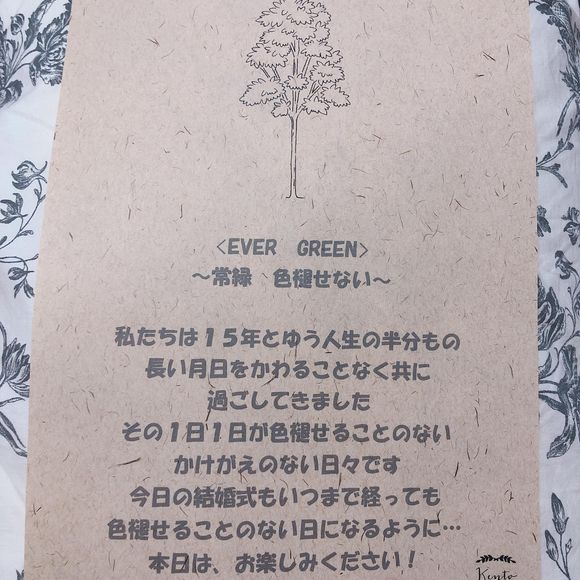 <EVER GREEN>
～常緑 色褪せない～
私たちは１５年とゆう人生の半分もの
長い月日をかわることなく共に
過ごしてきました
その１日１日が色褪せることのない
かけがえのない日々です
今日の結婚式もいつまで経っても
色褪せることのない日になるように…
本日は、お楽しみください！
Kento